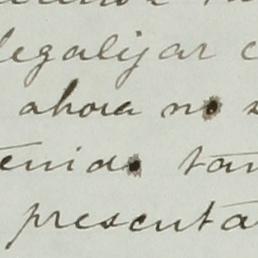 legalijar
ahora no
tenido tan
presenta